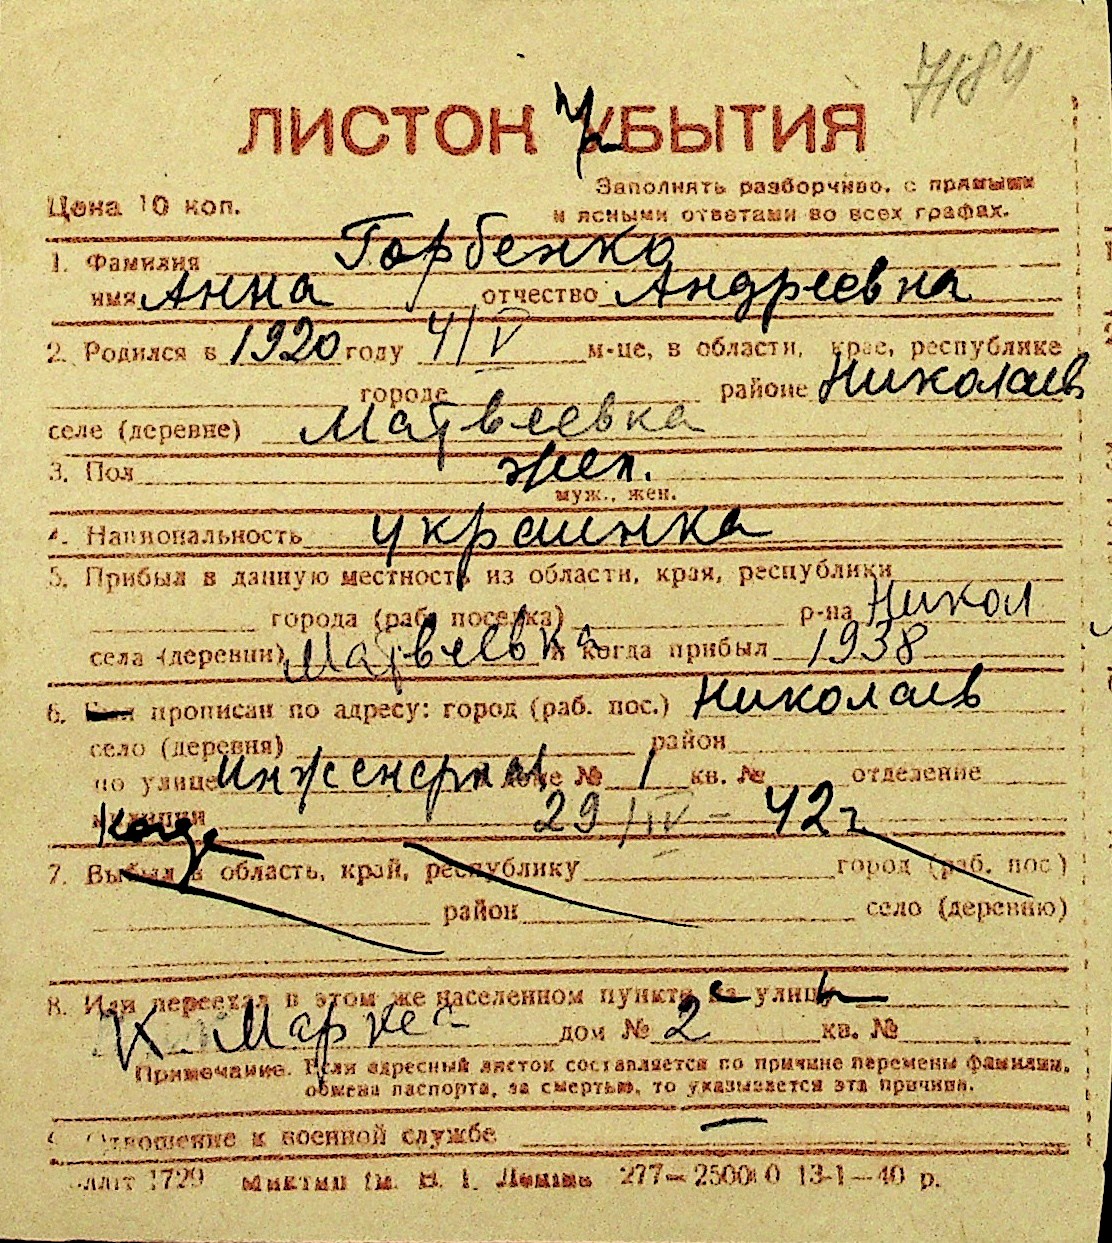 7184
ЛИСТОН УБЫТИЯ
Цена 10 коп.
Заполнять разборчиво, с прямыми
и ясными ответами во всех графах.
1. Фамилия Горбенко
имя Анна отчество Андреевна
2. Родился в 1920 году 4/V м-це, в области, крае, республике
городе районе Николаев
селе (деревне) Матвеевка
3. Пол жен.
муж., жен.
4. Национальность украинка
5. Прибыл в данную местность из области, края, республики
города (раб. поселка) р-на Никол
села (деревни) Матвеевка и когда прибыл 1938
6. прописан по адресу: город (раб. пос.) Николаев
село (деревня) район
по улице Инженерная доме № 1 кв. № отделение
милиции когда 29/IV - 42 г
7. Выбыл в область, край, республику город (раб. пос.)
район село (деревню)
8. Или переехал в этом же населенном пункте с улицы
К. Маркса дом № 2 кв. №
Примечание. Если адресный листок составляется по причине перемены фамилии,
обмена паспорта, за смертью, то указывается эта причина.
Отношение к военной службе —
1729 им. В. І. Леніна 277—25000 13-1—40 р.